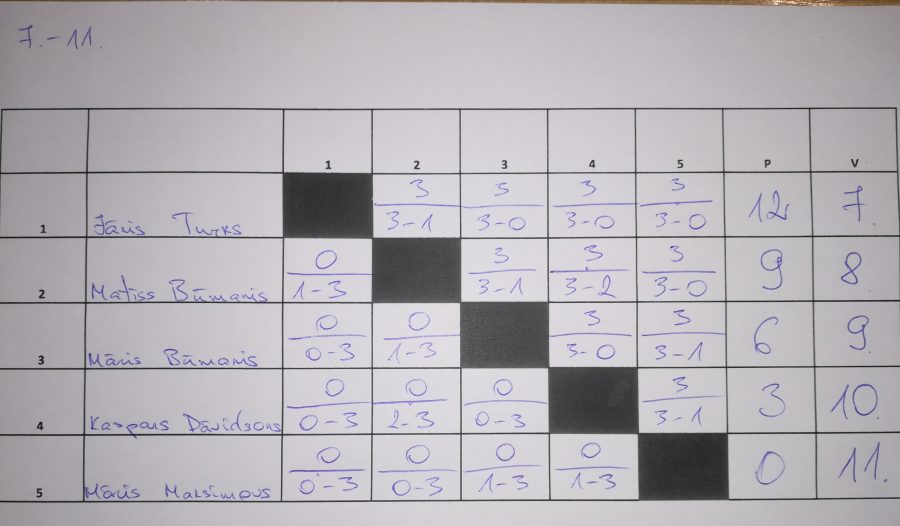 7.-11.
1 2 3 4 5 P V
3 3 3 3
1 Jānis Turks 3-1 3-0 3-0 3-0 12 7.
0 3 3 3
2 Matīss Būmanis 1-3 3-1 3-2 3-0 9 8
0 0 3 3
3 Māris Būmanis 0-3 1-3 3-0 3-1 6 9.
0 0 0 3
4 Kaspars Dāvidsons 0-3 2-3 0-3 3-1 3 10.
0 0 0 0
5 Māris Maksimovs 0-3 0-3 1-3 1-3 0 11.